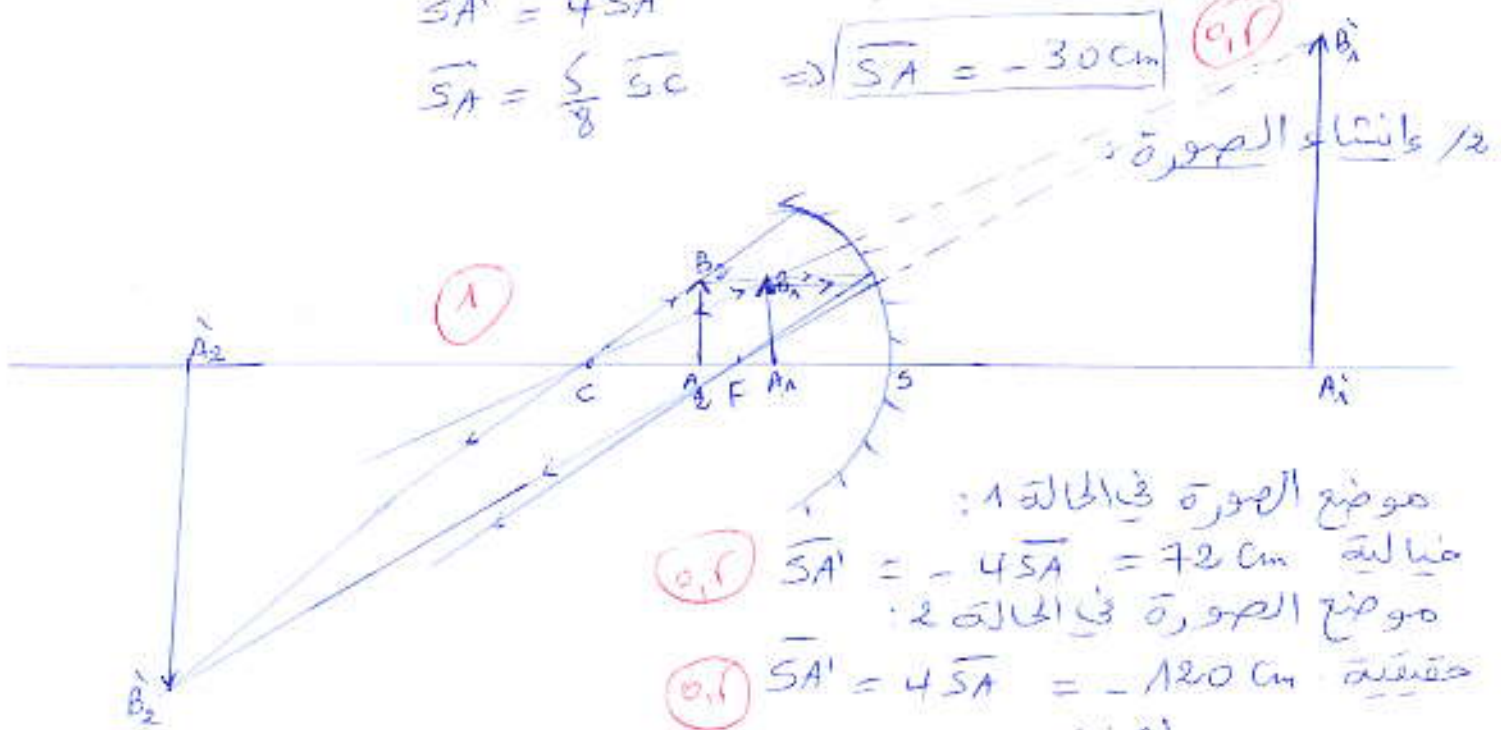 SA' = 4SA
SA = 5/8 SC ⇒ SA = - 30 Cm
0,5
B'₁
2/ إنشاء الصورة :
1
A'₂
B₂
B₁
C
A₂
F
A₁
S
A'₁
B'₂
موضع الصورة في الحالة 1:
0,5 SA' = - 4SA = 72 Cm خيالية
موضع الصورة في الحالة 2:
0,5 SA' = 4SA = - 120 Cm حقيقية